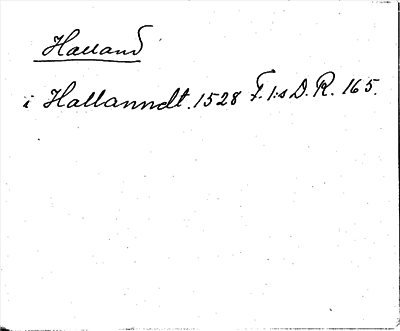 Halland
i Hallanndt. 1528 F. I:s D. R. 165.